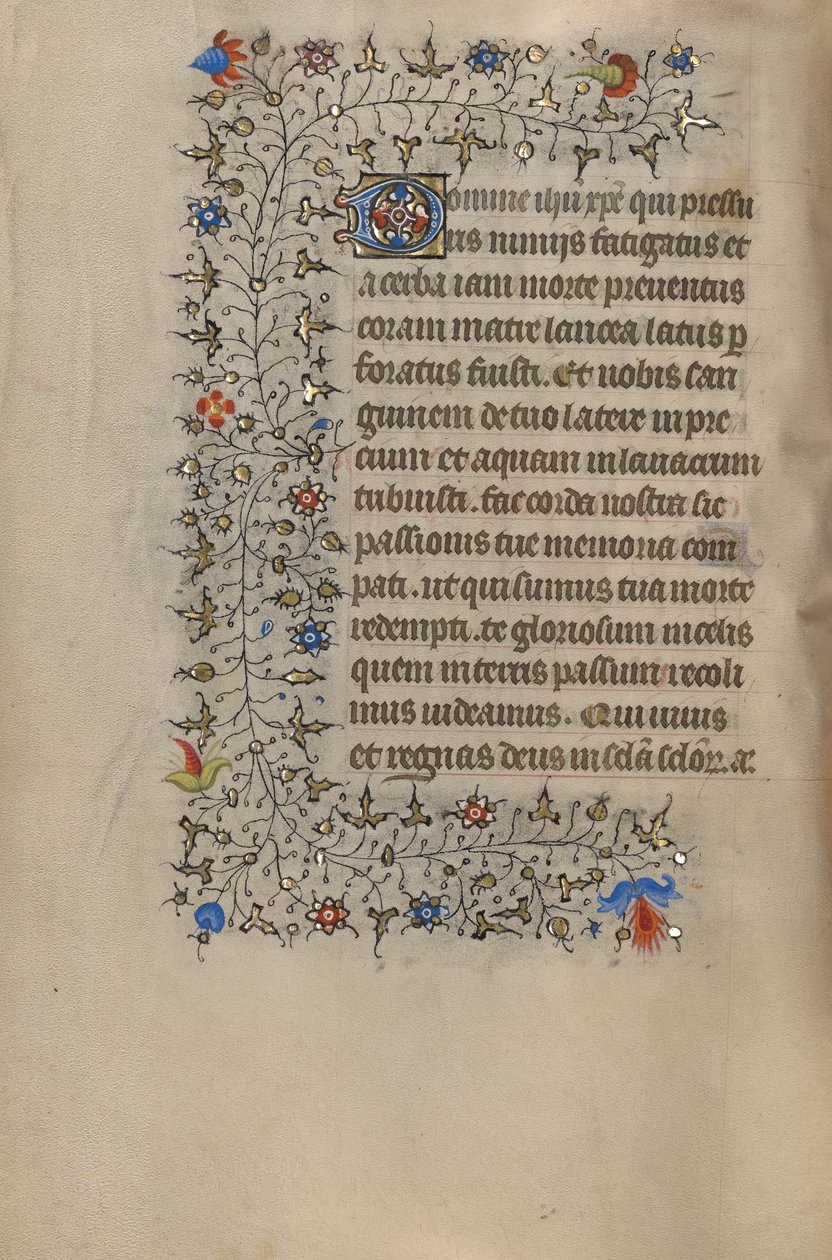 Domine ihu xpe qui pressu
ris nimijs fatigatus et
acerba iam morte preuentus
coram matre lancea latus p
foratus fuisti. Et nobis san
guinem de tuo latere in pre
cium et aquam in lauacrum
tribuisti. fac corda nostra sic
passionis tue memoria com
pati. ut qui sumus tua morte
redempti. te gloriosum in celis
quem in terris passum recoli
mus uideamus. Qui uiuis
et regnas deus in scła scłoꝝ. a.